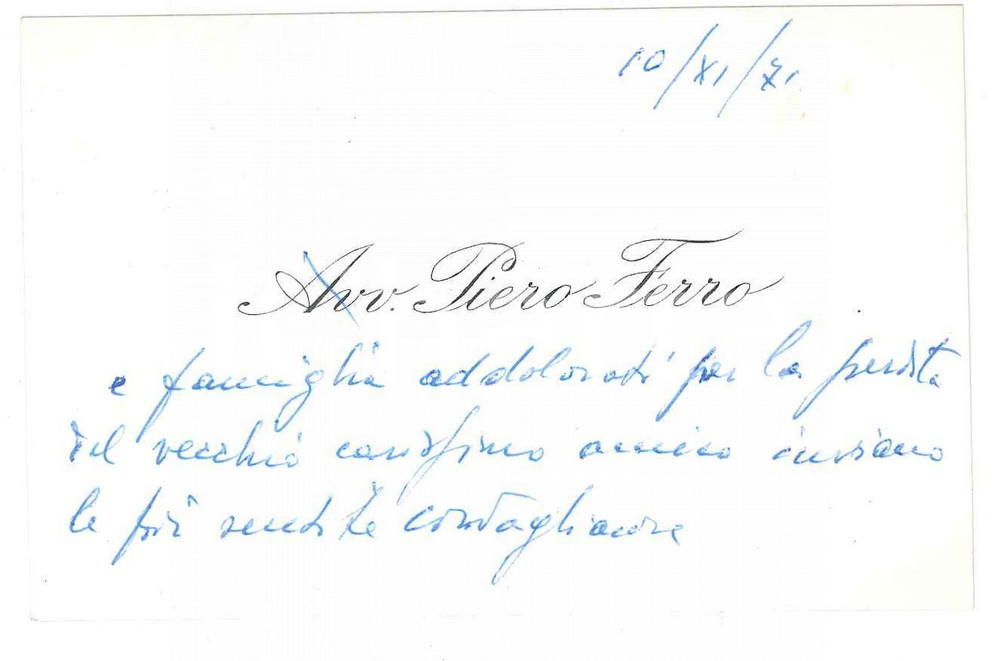 10/XI/71
Avv. Piero Ferro
e famiglia addolorati per la perdita
del vecchio carissimo amico inviano
le più sentite condoglianze